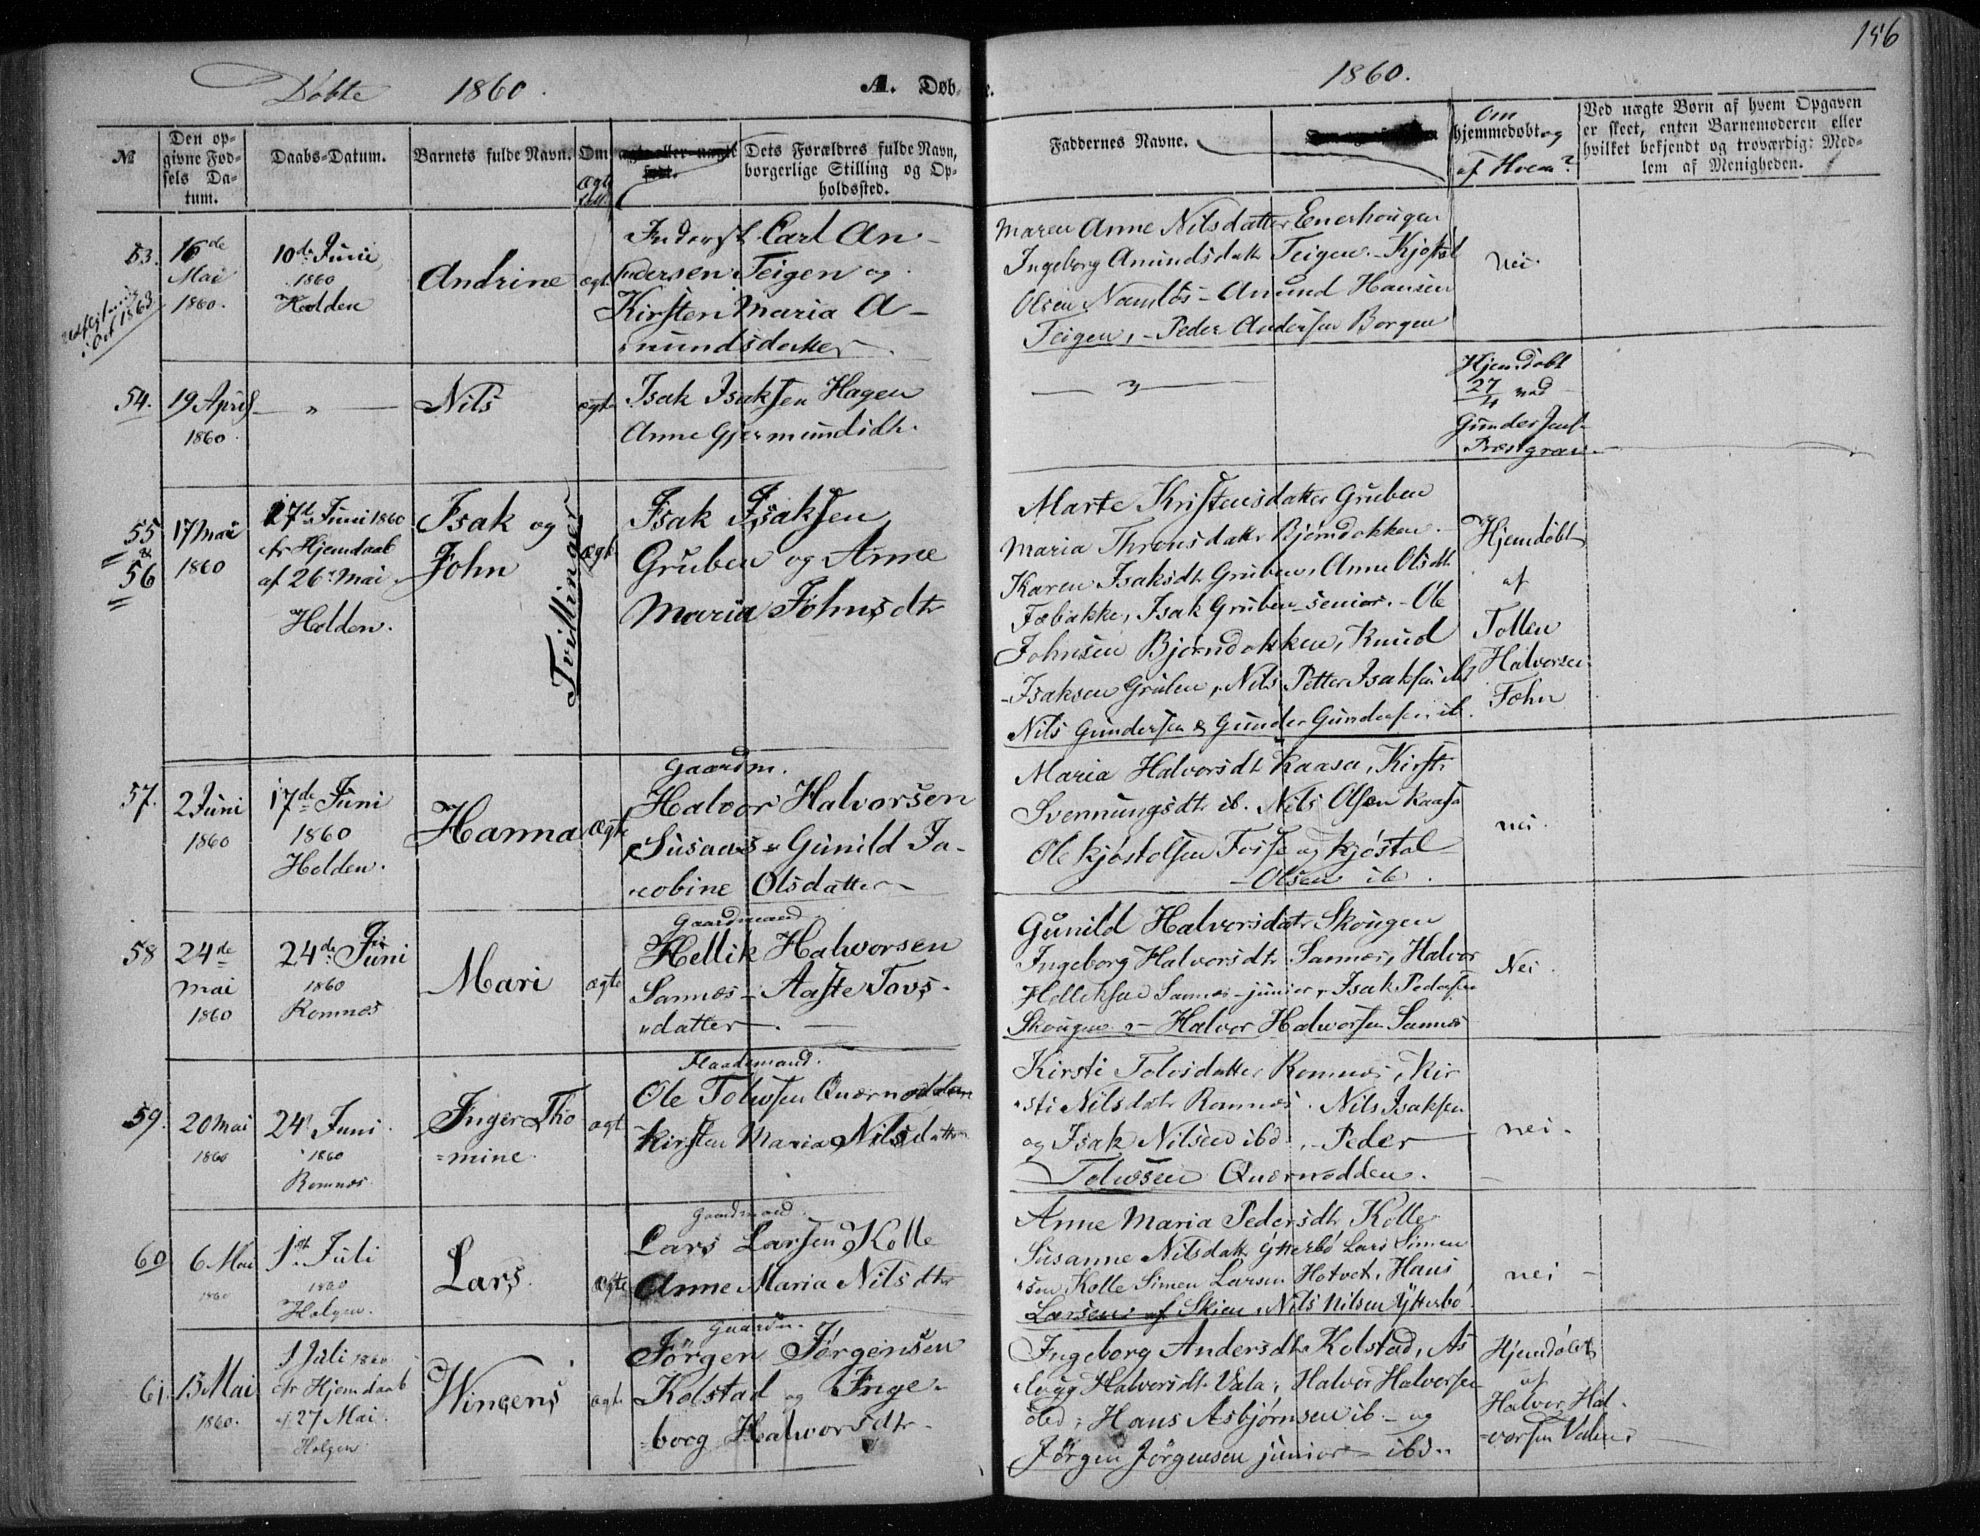 156
Døbte 1860.
A. Døb- e.
1860.
№
Den op-
givne Fød-
sels Da-
tum.
Daabs-Datum.
Barnets fulde Navn.
Om
ægte eller uægte
født.
ægte
Dets Forældres fulde Navn,
borgerlige Stilling og Op-
holdssted.
Faddernes Navne.
Om
hjemmedøbt og
af Hvem?
Ved uægte Børn af hvem Opgaven
er skeet, enten Barnemoderen eller
hvilket bekjendt og troværdig: Med-
lem af Menigheden.
53.
i Oct 1863
16de
Mai
1860.
10de Juni
1860
Holden
Andrine
ægt
Inderst Carl An-
dersen Teigen og
Kirsten Maria A-
mundsdatter
Maren Anne Nilsdatter Enerhougen
Ingeborg Amundsdatt Teigen - Kjøstol
Olsen Namløs - Amund Hansen
Teigen, - Peder Andersen Borgen
Nei.
54.
19 April
1860
— " —
Nils
ægte
Isak Isaksen Hagen
Anne Gjermundsdtr.
— " —
Hjemdøbt
27/4 ved
Gunder
Præstgrav
55
&
56
17 Mai
1860
17de Juni 1860
fr Hjemdaab
af 26 Mai
Holden.
Isak og
John
Tvillinger
Ægt
Isak Isaksen
Gruben og Anne
Maria Johnsdtr
Marte Kristensdatter Gruben
Maria Thronsdattr Bjørndokken
Karen Isaksdtr Gruben, Anne Olsdtr
Fæbakke, Isak Gruben senior. - Ole
Johnsen Bjørndokken, Knud
Isaksen Gruben, Nils Petter Isaksen ib
Nils Gundersen & Gunder Gundersen ib.
Hjemdøbt
af
Tollen
Halvorsen
Fæhn
57.
2 Juni
1860
17de Juni
1860
Holden.
Hanna
Ægte
Gaardm.
Halvor Halvorsen
Susaas - Gunild Ja-
cobine Olsdatter
Maria Halvorsdt Kaasa, Kirsti
Svennungsdtr ib. Nils Olsen Kaasa
Ole Kjøstolsen Fosse og Kjøstol
- Olsen ib.
nei.
58
24de
Mai
1860
24de Juni
1860
Romnes
Mari
ægte
Gaardmand
Hellik Halvorsen
Sannes - Aaste Tovs-
datter -
Gunild Halvorsdatr Skougen
Ingeborg Halvorsdtr Sannes, Halvor
Helleksen Sannes junior, Isak Pedersen
Skougen - Halvor Halvorsen Sannes
Nei.
59.
20 Mai
1860
24 Juni.
1860
Romnes
Inger Tho
=mine.
ægt
Gaardmand.
Ole Tolvsen Qværnodden
Kirsten Maria Nilsdatter
Kirsti Tolvsdatter Romnes, Kir
sti Nilsdatr Romnes. Nils Isaksen
og Isak Nilsen ibd. - Peder
Tolvsen Qværnodden.
nei.
60
6 Mai
1860
1ste Juli
1860
Helgen.
Lars.
ægte
Gaardmand.
Lars Larsen Kolle
Anne Maria Nilsdtr
Anne Maria Pedersdtr Kolle
Susanne Nilsdatt Ytterbø Lars Simen
sen Kolle Simen Larsen Hotvet, Hans
Larsen af Skien, Nils Nilsen Ytterbø
nei -
61.
15 Mai
1860.
1 Juli 1860
fr Hjemdaab
af 27 Mai.
Helgen
Wincens
ægte
Gaardm.
Jørgen Jørgensen
Kolstad og Inge-
=borg Halvorsdtr.
Ingeborg Andersdtr Kolstad, As
laug Halvorsdtr Vala, Halvor Halvorsen
ibd, Hans Asbjørnsen ib - og
Jörgen Jörgensen junior - ibd.
Hjemdøbt
af
Halvor Hal-
=vorsen Valen.